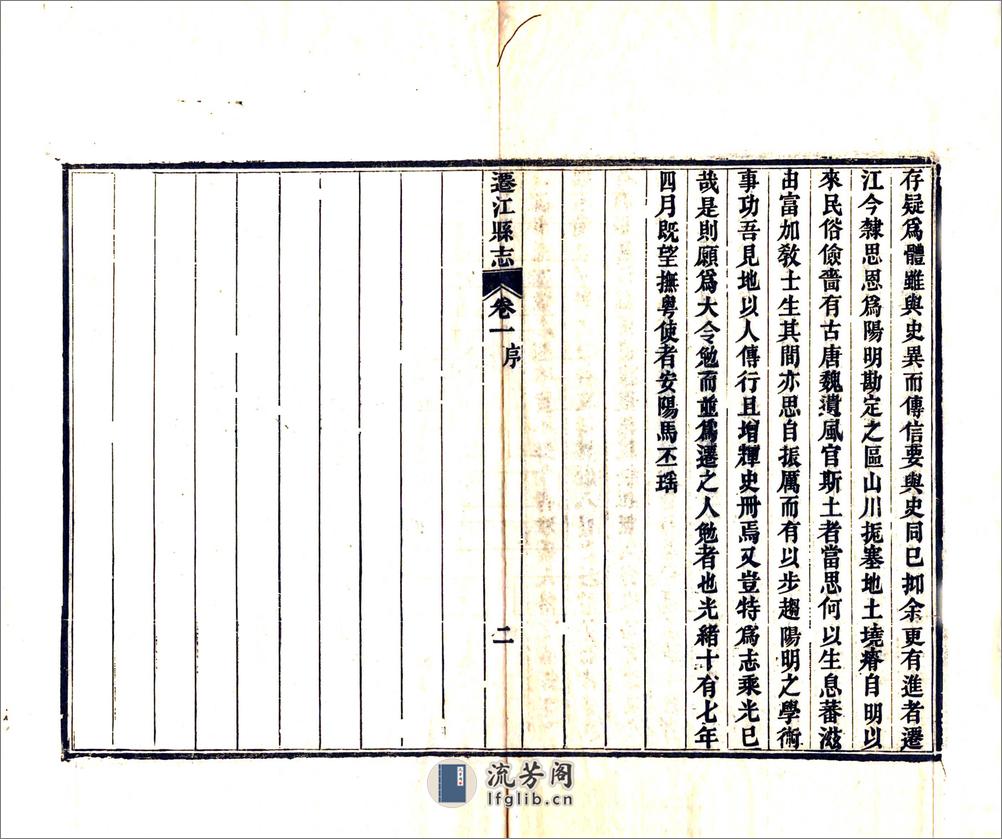 存疑爲體雖與史異而傳信要與史同已抑余更有進者遷
江今隸思恩爲陽明勘定之區山川扼塞地土墝瘠自明以
來民俗儉嗇有古唐魏遺風官斯土者當思何以生息蕃滋
由富加敎士生其間亦思自振厲而有以步趨陽明之學術
事功吾見地以人傳行且增輝史冊焉又豈特爲志乘光已
哉是則願爲大令勉而並爲遷之人勉者也光緒十有七年
四月既望撫粤使者安陽馬丕瑶
遷江縣志
卷一
序
二
流芳阁
lfglib.cn